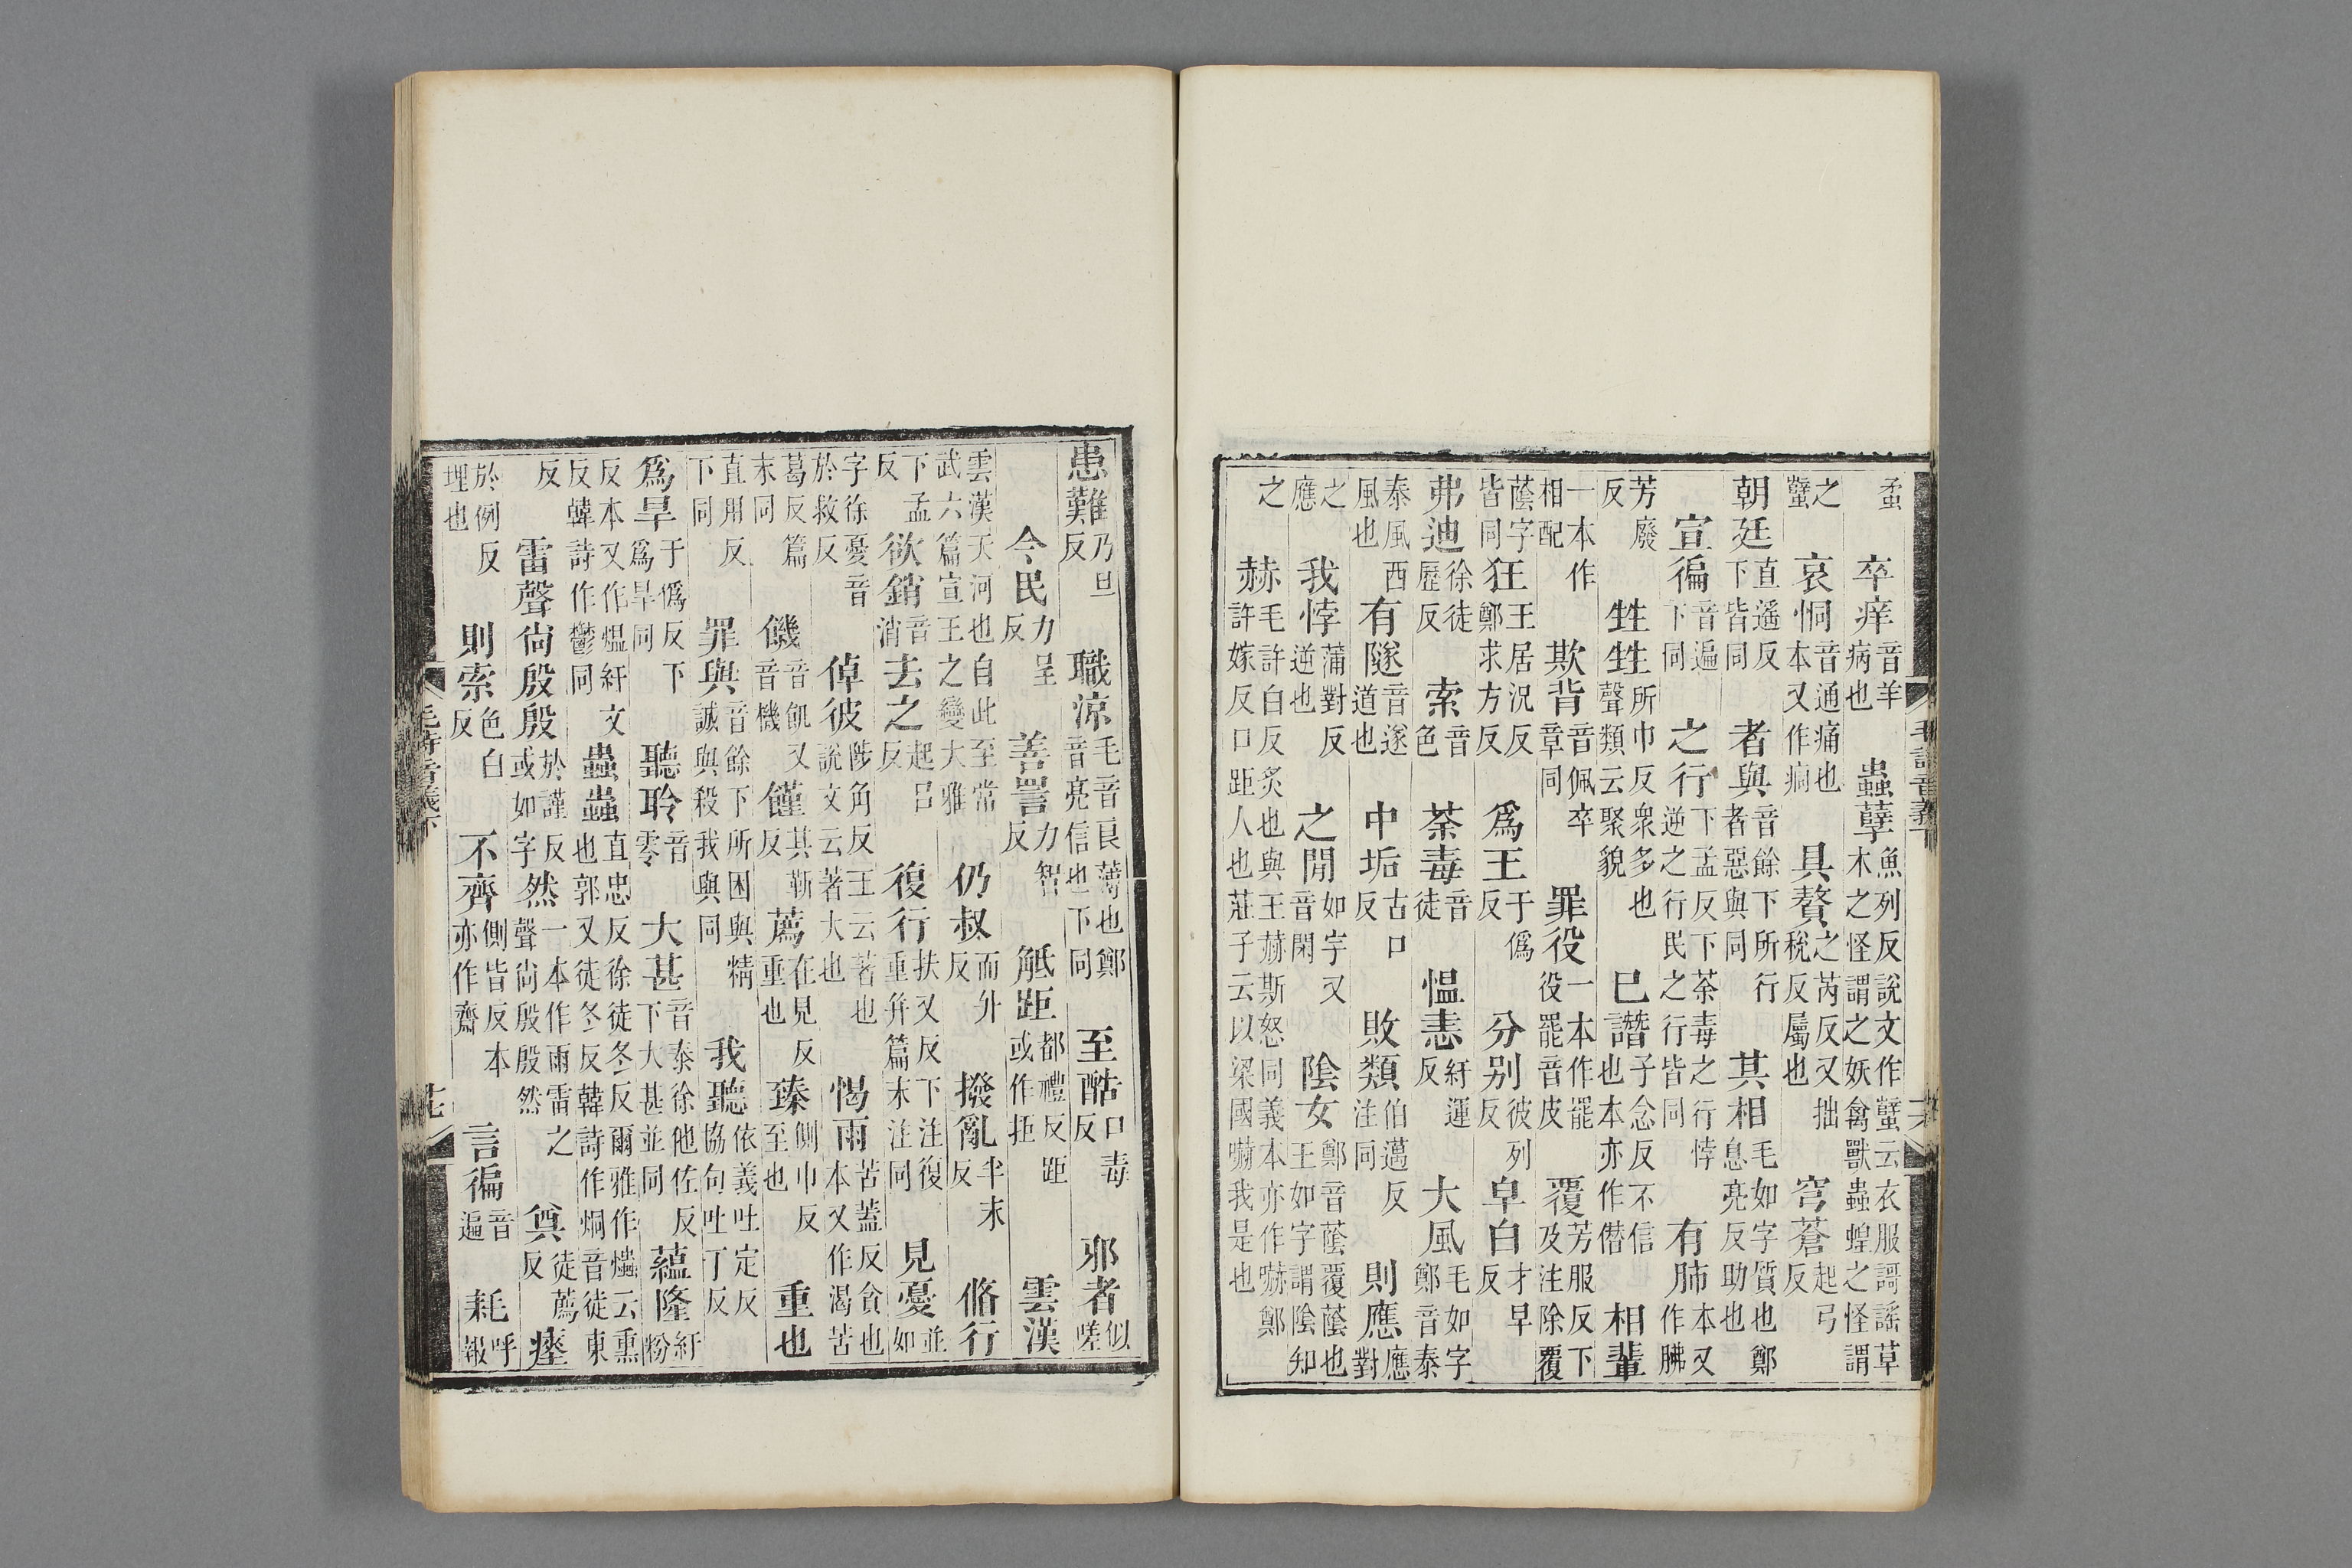 蟊　卒痒音羊病也　蟲孽魚列反說文作蠥云衣服謌謠草木之怪謂之妖禽獸蟲蝗之怪謂
之蠥　哀恫音通痛也本又作痌　具贅之芮反又拙稅反屬也　穹蒼起弓反
朝廷直遥反下皆同　者與音餘下所行者惡與同　其相毛如字質也鄭息亮反助也
宣徧音遍下同　之行下孟反下荼毒之行悖逆之行民之行皆同　有肺本又作胏
芳廢反　甡甡所巾反衆多也聲類云聚貌　已譖子念反不信也本亦作僭　相輩
一本作相配　欺背音佩卒章同　罪役一本作罷役罷音皮　覆芳服反下及注除覆
蔭字皆同　狂王居況反鄭求方反　爲王于僞反　分别彼列反　皁白才早反
弗迪徐徒歷反　索音色　荼毒音徒　愠恚紆運反　大風毛如字鄭音泰
泰風西風也　有隧音遂道也　中垢古口反　敗類伯邁反注同　則應應對
之應　我悖蒲對反逆也　之閒如字又音閑　陰女鄭音蔭覆蔭也王如字謂陰知
之　赫毛許白反炙也與王赫斯怒同義本亦作嚇鄭許嫁反口距人也莊子云以梁國嚇我是也
患難乃旦反　職涼毛音良薄也鄭音亮信也下同　至酷口毒反　邪者似嗟
今民力呈反　善詈力智反　觝距都禮反距或作拒　雲漢
雲漢天河也自此至常武六篇宣王之變大雅　仍叔而升反　撥亂半末反　脩行
下孟反　欲銷音消　去之起呂反　復行扶又反下注復重并篇末注同　見憂並如
字徐憂音於救反　倬彼陟角反王云著也說文云著大也　愒雨苦蓋反貪也本又作渴苦
葛反篇末同　饑音飢又音機　饉其靳反　薦在見反重也　臻側巾反至也　重也
直用反下同　罪與音餘下所困與精誠與殺我與同　我聽依義吐定反協句吐丁反
爲旱于僞反下爲旱同　聽聆音零　大甚音泰徐他佐反下大甚並同　蘊隆紆粉
反本又作煴紆文反韓詩作鬱同　蟲蟲直忠反徐徒冬反爾雅作爞云熏也郭又徒冬反韓詩作烔音徒東
反　雷聲尙殷殷於謹反或如字　然一本作雨雷之聲尙殷殷然　奠徒薦反　瘞
於例反埋也　則索色白反　不齊側皆反本亦作齋　言徧音遍　耗呼報
毛詩音義下